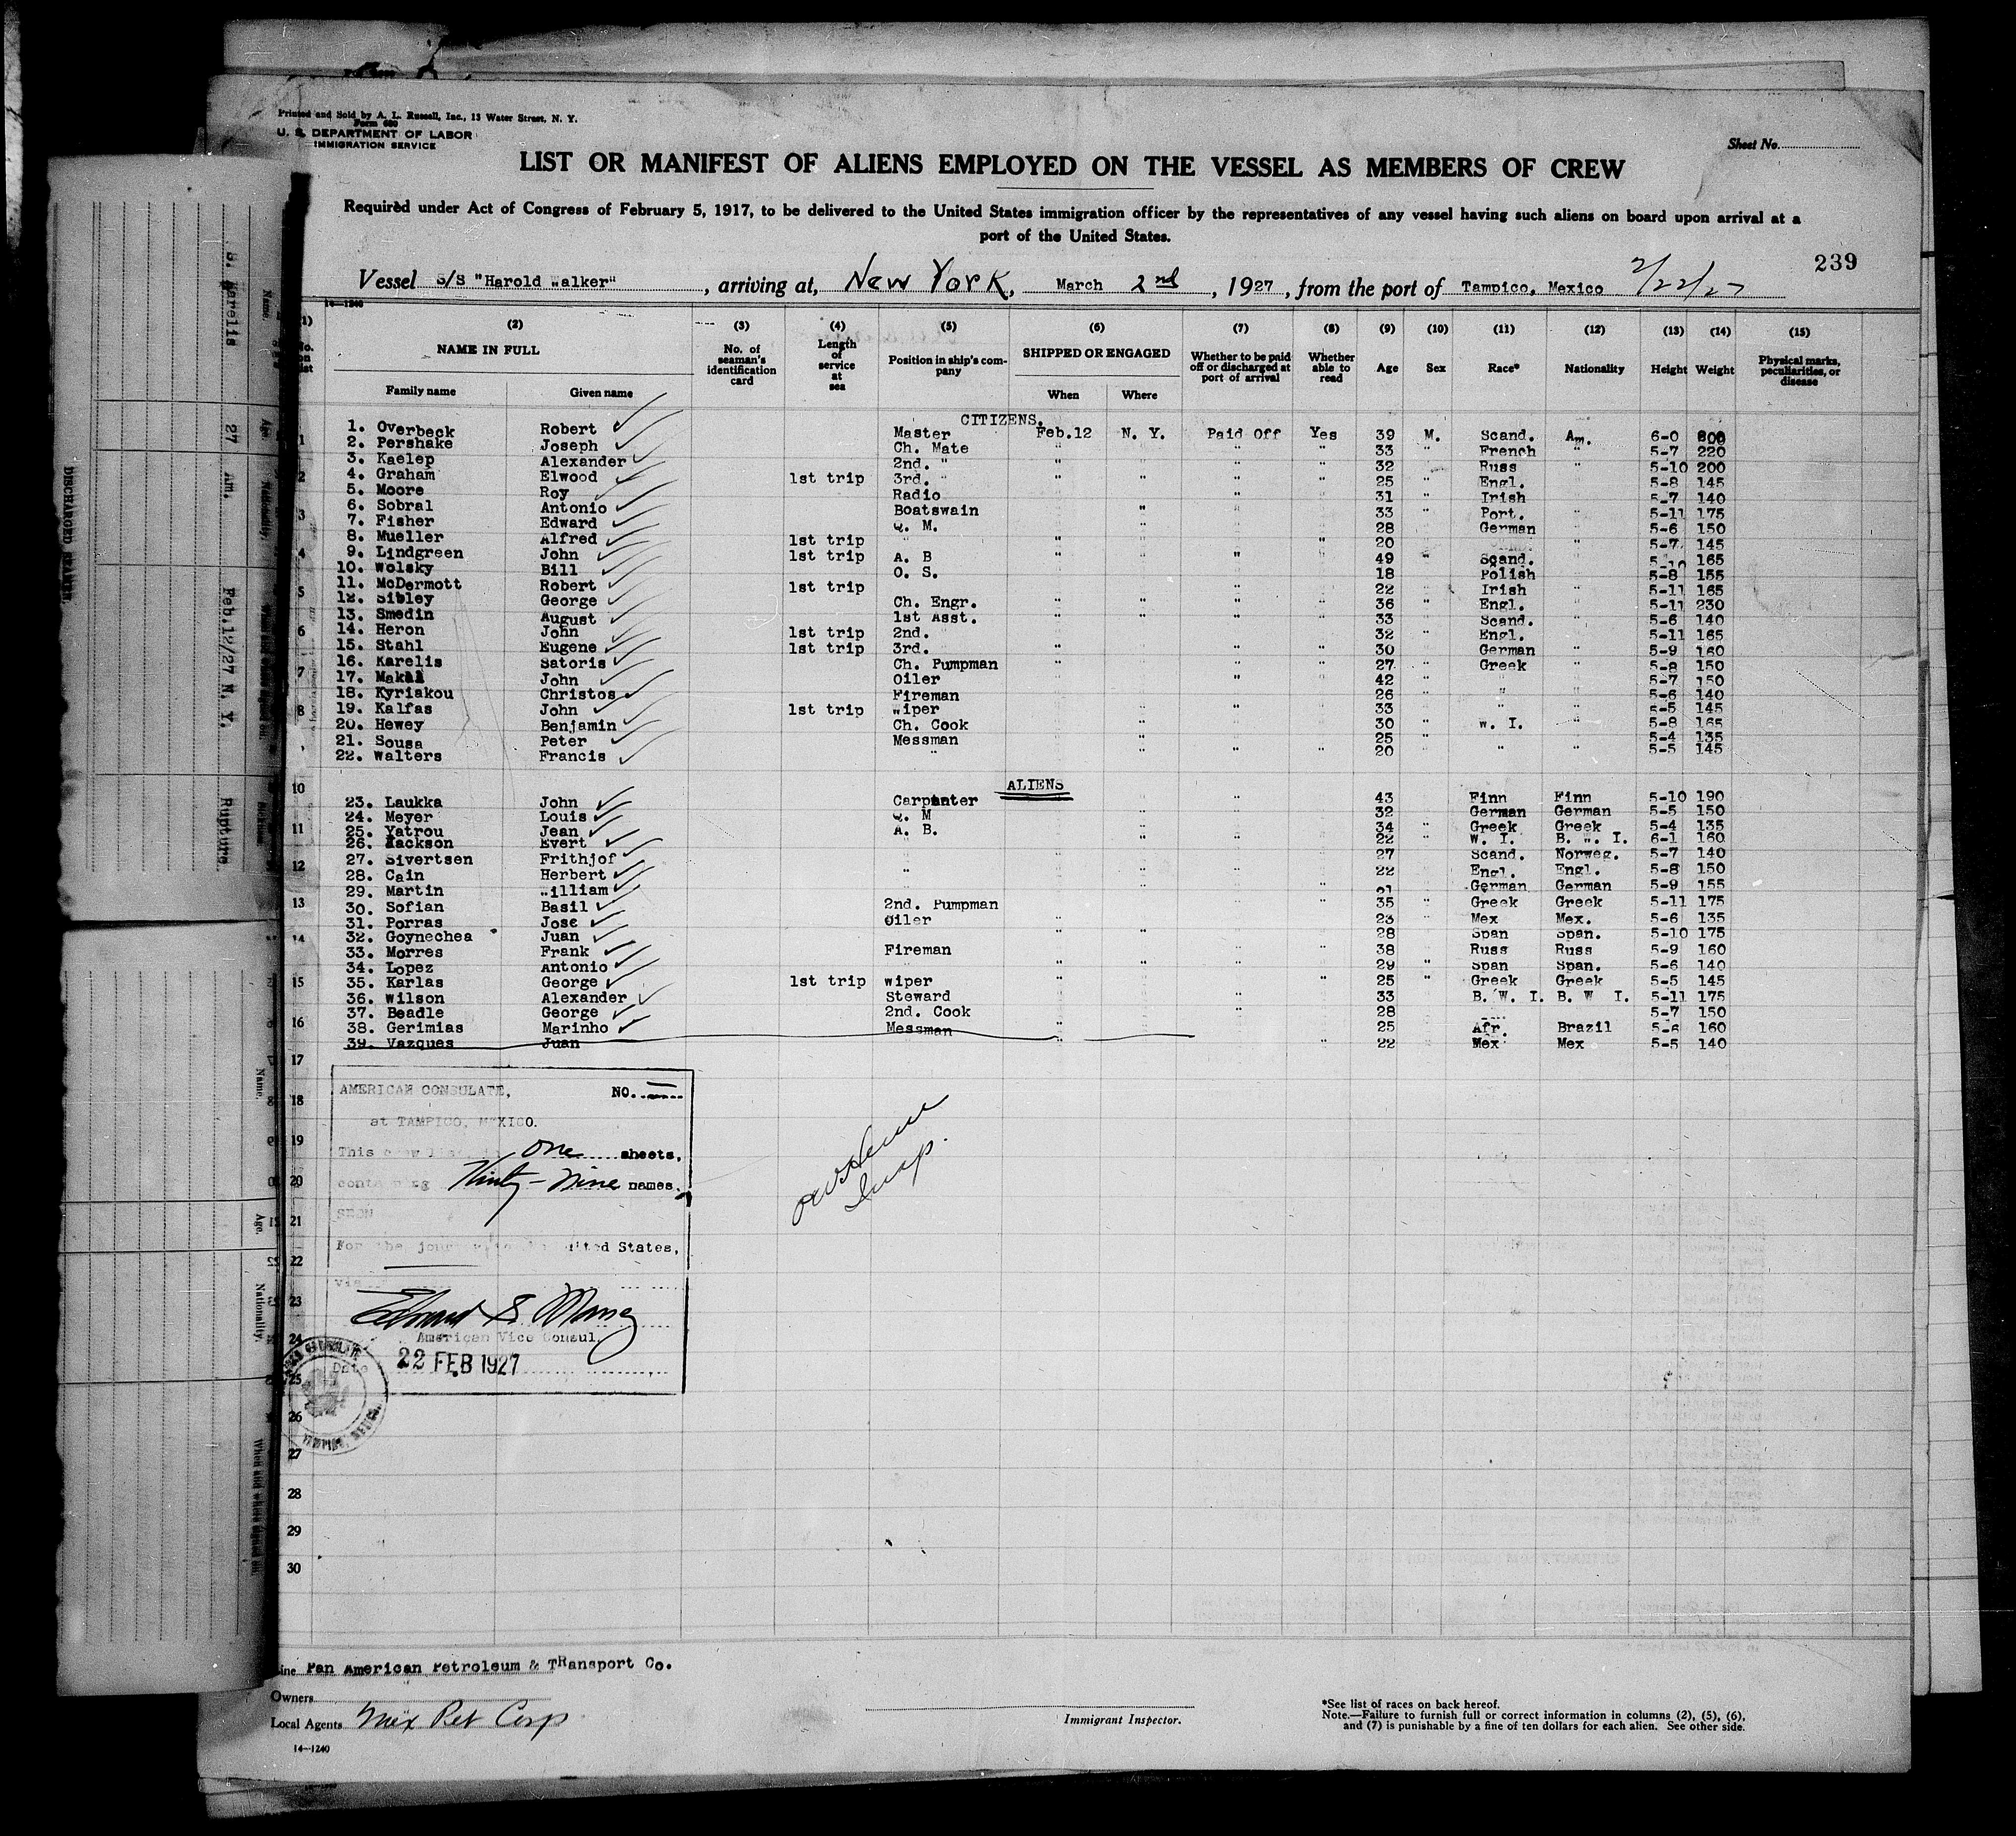 Printed and Sold by A. L. Russell, Inc., 13 Water Street, N. Y.
Form 680
U. S. DEPARTMENT OF LABOR
IMMIGRATION SERVICE
Sheet No.
LIST OR MANIFEST OF ALIENS EMPLOYED ON THE VESSEL AS MEMBERS OF CREW
Required under Act of Congress of February 5, 1917, to be delivered to the United States immigration officer by the representatives of any vessel having such aliens on board upon arrival at a
port of the United States.
239
Vessel S/S "Harold Walker", arriving at, New York, March 2nd, 1927, from the port of Tampico, Mexico 2/22/27
14-1240
(1) (2) (3) (4) (5) (6) (7) (8) (9) (10) (11) (12) (13) (14) (15)
NAME IN FULL No. of seaman's identification card Length of service at sea Position in ship's company SHIPPED OR ENGAGED Whether to be paid off or discharged at port of arrival Whether able to read Age Sex Race* Nationality Height Weight Physical marks, peculiarities, or disease
Family name Given name When Where
CITIZENS.
1. Overbeck Robert Master Feb.12 N. Y. Paid Off Yes 39 M. Scand. Am. 6-0 200
2. Pershake Joseph Ch. Mate " " " " 33 " French " 5-7 220
3. Kaelep Alexander 2nd. " 32 Russ 5-10 200
4. Graham Elwood 1st trip 3rd. " 25 Engl. 5-8 145
5. Moore Roy Radio 31 Irish 5-7 140
6. Sobral Antonio Boatswain 33 Port. 5-11 175
7. Fisher Edward Q. M. 28 German 5-6 150
8. Mueller Alfred 1st trip " 20 5-7 145
9. Lindgreen John 1st trip A. B 49 Scand. 5-10 165
10. Wolsky Bill O. S. 18 Polish 5-8 155
11. McDermott Robert 1st trip 22 Irish 5-11 165
12. Sibley George Ch. Engr. 36 Engl. 5-11 230
13. Smedin August 1st Asst. 33 Scand. 5-6 140
14. Heron John 1st trip 2nd. 32 Engl. 5-11 165
15. Stahl Eugene 1st trip 3rd. 30 German 5-9 160
16. Karelis Satoris Ch. Pumpman 27 Greek 5-8 150
17. Makal John Oiler 42 " 5-7 150
18. Kyriakou Christos Fireman 26 " 5-6 140
19. Kalfas John 1st trip Wiper 33 " 5-5 145
20. Hewey Benjamin Ch. Cook 30 W. I. 5-8 165
21. Sousa Peter Messman 25 5-4 135
22. Walters Francis " 20 " 5-5 145
ALIENS
23. Laukka John Carpenter 43 Finn Finn 5-10 190
24. Meyer Louis Q. M 32 German German 5-5 150
25. Yatrou Jean A. B. 34 Greek Greek 5-4 135
26. Jackson Evert 22 W. I. B. W. I. 6-1 160
27. Sivertsen Frithjof 27 Scand. Norweg. 5-7 140
28. Cain Herbert " 22 Engl. Engl. 5-8 150
29. Martin William 21 German German 5-9 155
30. Sofian Basil 2nd. Pumpman 35 Greek Greek 5-11 175
31. Porras Jose Oiler 23 Mex Mex. 5-6 135
32. Goynechea Juan 28 Span Span. 5-10 175
33. Morres Frank Fireman 38 Russ Russ 5-9 160
34. Lopez Antonio 29 Span Span. 5-6 140
35. Karlas George 1st trip wiper 25 Greek Greek 5-5 145
36. Wilson Alexander Steward 33 B. W. I. B. W I. 5-11 175
37. Beadle George 2nd. Cook 28 5-7 150
38. Gerimias Marinho Messman 25 Afr. Brazil 5-6 160
39. Vazques Juan 22 Mex Mex 5-5 140
AMERICAN CONSULATE, NO.
at TAMPICO, MEXICO.
This crew list one sheets,
containing Thirty-nine names.
SEEN
For the journey to the United States,
via
American Vice Consul.
Date 22 FEB 1927
Insp.
1 2 3 4 5 6 7 8 10 11 12 13 14 15 16 17 18 19 20 21 22 23 24 25 26 27 28 29 30
Line Pan American Petroleum & TRansport Co.
Owners
Local Agents Mex Pet Corp
Immigrant Inspector.
*See list of races on back hereof.
Note.—Failure to furnish full or correct information in columns (2), (5), (6),
and (7) is punishable by a fine of ten dollars for each alien. See other side.
14-1240
DISCHARGED SEAMEN
S. Karelis 27 Am. Feb.12/27 N. Y. Rupture
Name. Age. Nationality.
Name. Age. Nationality. When and where signed on